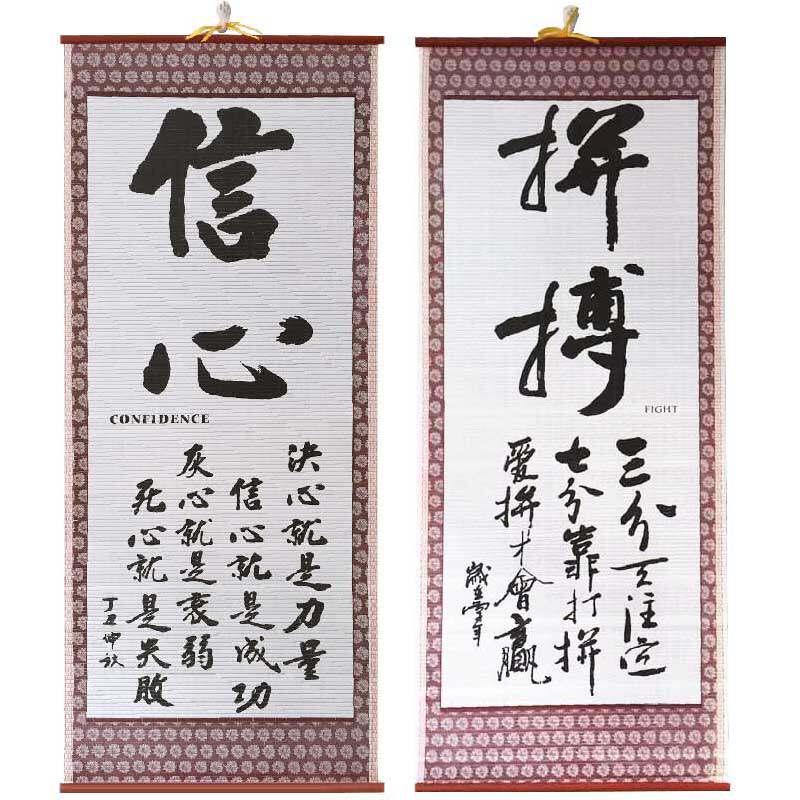 信心
CONFIDENCE
决心就是力量
信心就是成功
灰心就是衰弱
死心就是失败
丁丑仲秋
拼搏
FIGHT
三分天注定
七分靠打拼
愛拼才會贏